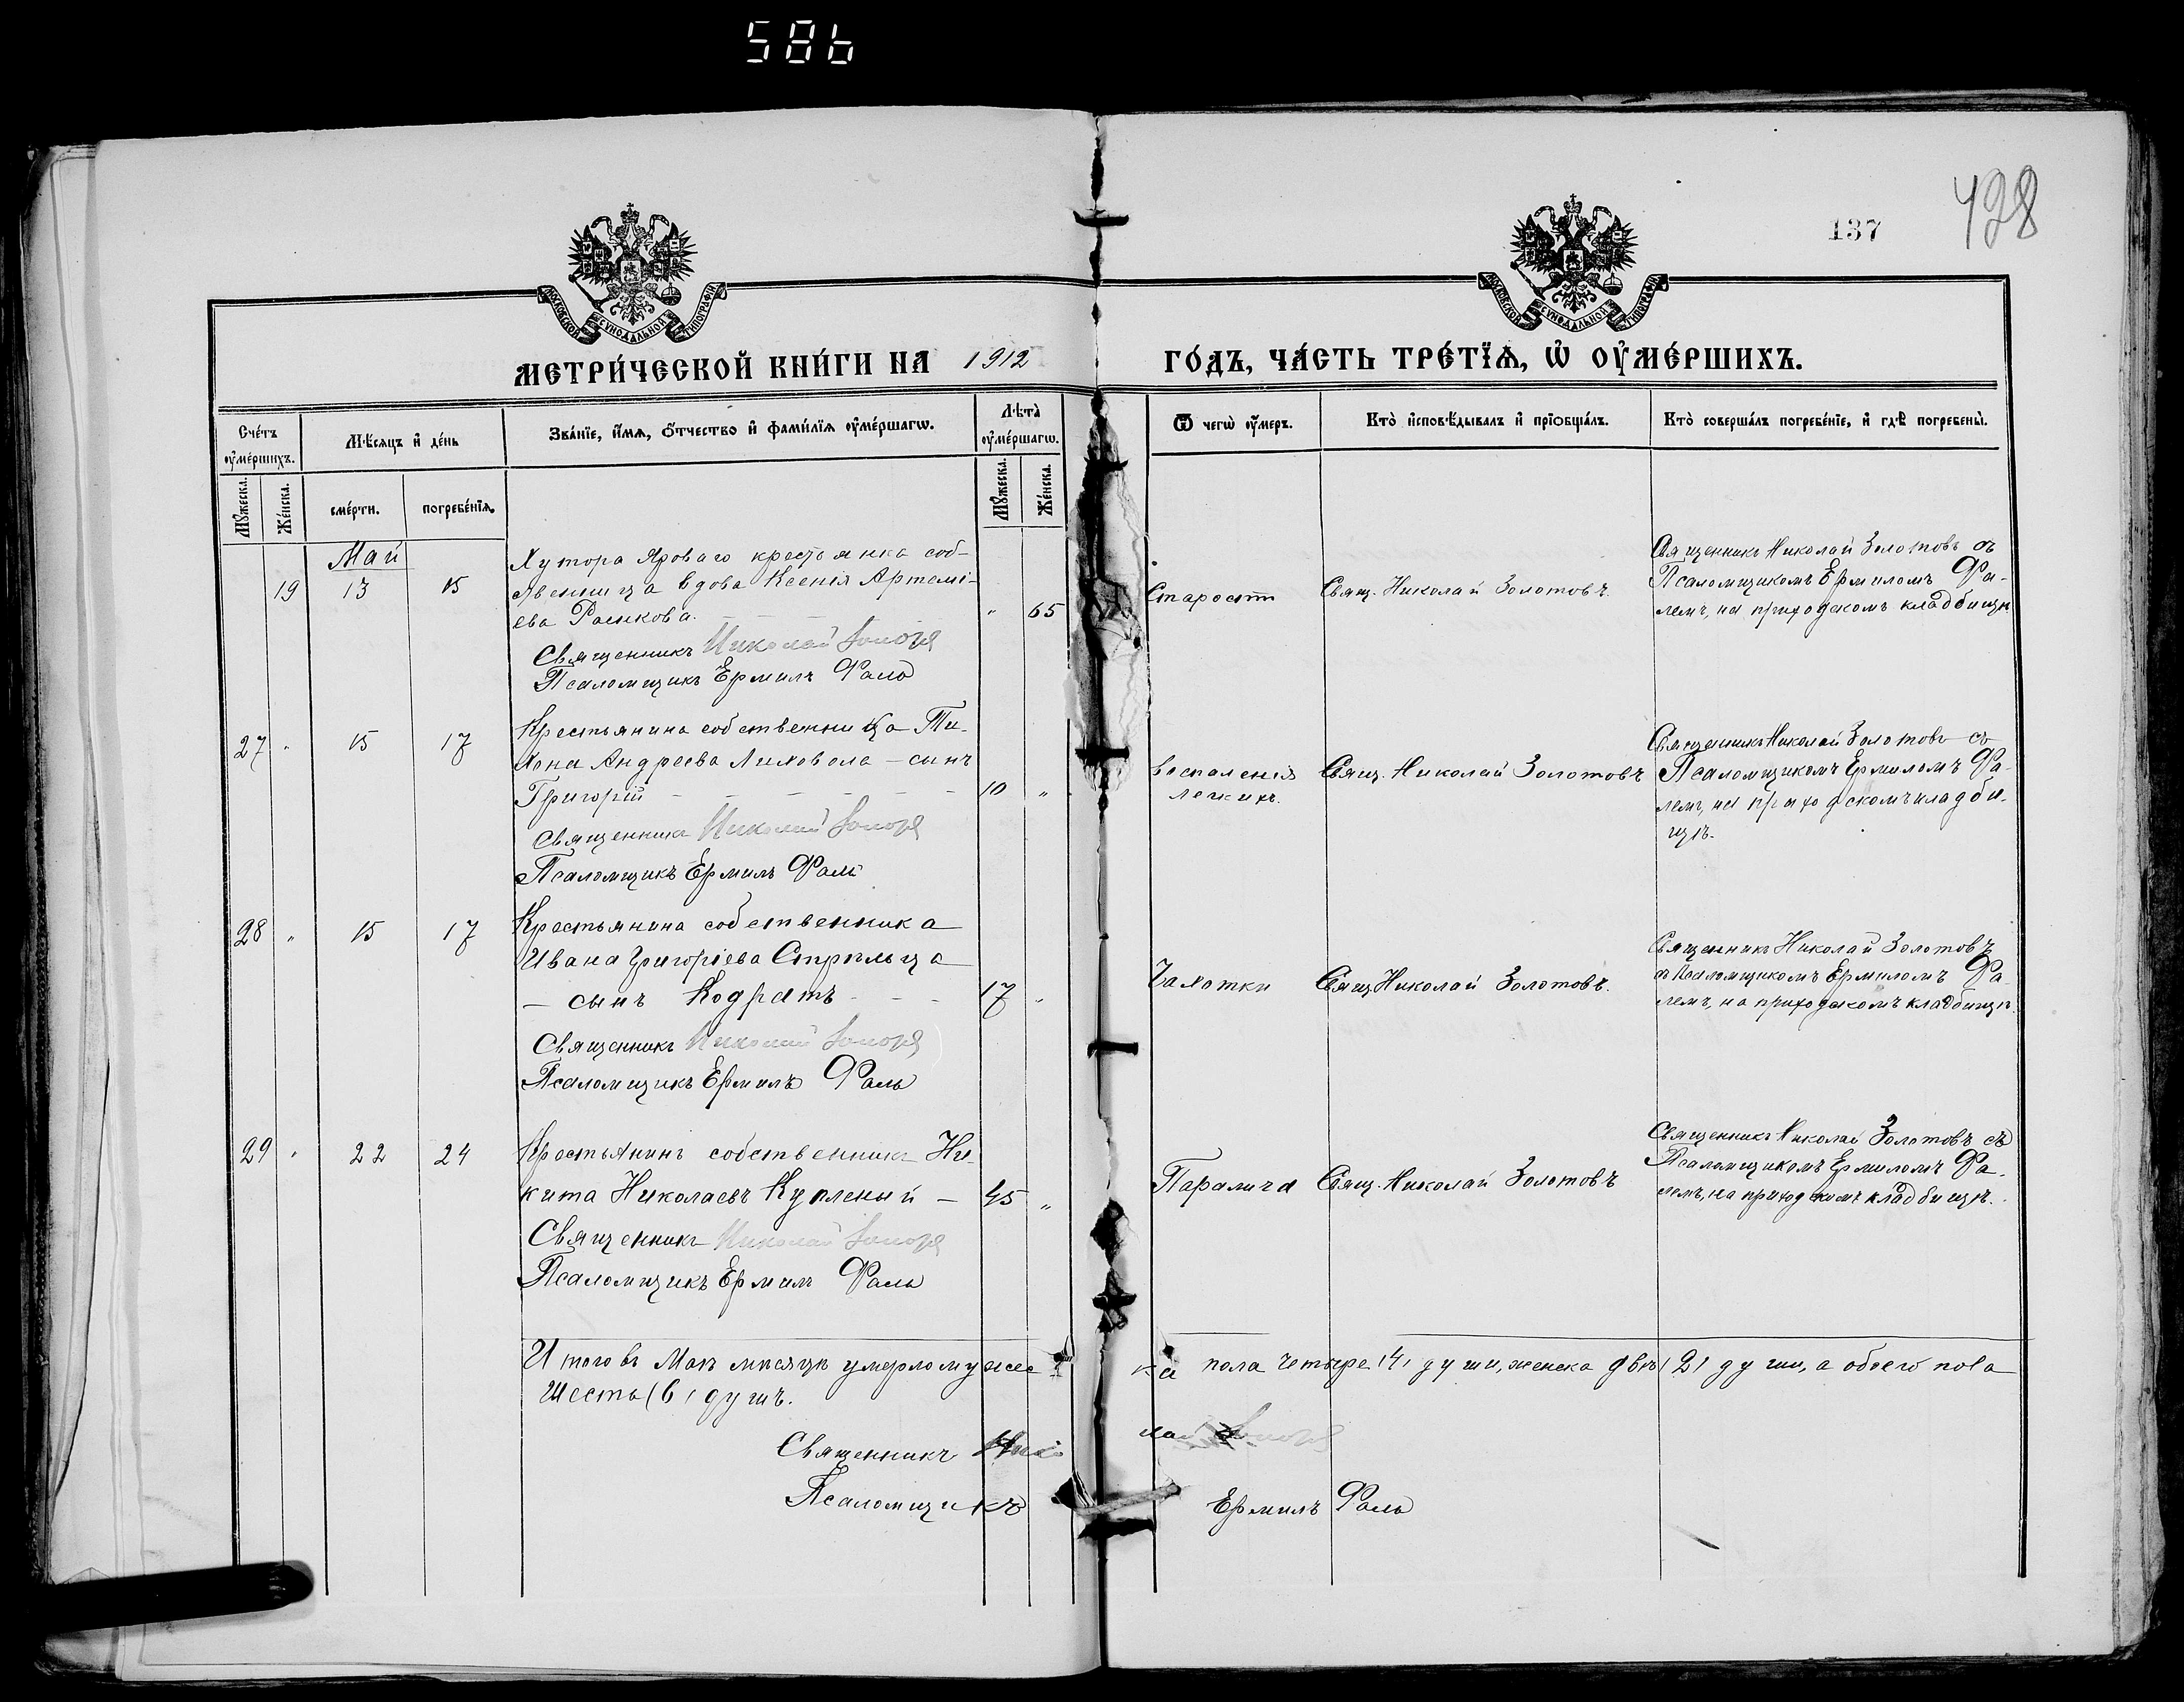 586
137
428
МОСКОВСКОЙ СѴНОДАЛЬНОЙ ТИПОГРАФІИ
МОСКОВСКОЙ СѴНОДАЛЬНОЙ ТИПОГРАФІИ
МЕТРИ́ЧЕСКОЙ КНИ́ГИ НА 1912 ГО́ДЪ, ЧА́СТЬ ТРЕ́ТЇѦ, Ѡ҆ ОУ҆МЕ́РШИХЪ.
Сче́тъ оу҆ме́ршихъ.
Мꙋ́жеска.
Же́нска.
Мѣ́сяцъ и҆ де́нь
сме́рти.
погребе́нїѧ.
Зва́нїе, и҆́мѧ, ѻ҆́тчество и҆ фами́лїѧ оу҆ме́ршагѡ.
Лѣ́та оу҆ме́ршагѡ.
Мꙋ́жеска.
Же́нска.
Ѿ чегѡ̀ оу҆́меръ.
Кто̀ и҆сповѣ́дывалъ и҆ прїѡбща́лъ.
Кто̀ соверша́лъ погребе́нїе, и҆ гдѣ̀ погребены̀.
Май
19 13 15
Хутора Яроваго крестьянка соб-
ственница вдова Ксенія Артемі-
ева — — — " 65
Священникъ Николай
Псаломщикъ Ермилъ Фаль
Старости
Свящ. Николай Золотовъ.
Священникъ Николай Золотовъ съ
Псаломщикомъ Ермиломъ Фа-
лемъ, на приходскомъ кладбищѣ
27 " 15 17
Крестьянина собственника Пи-
мона Андреева Лиховола — сынъ
Григорій — — — — — 10 "
Священникъ Николай
Псаломщикъ Ермилъ Фаль
Воспаленія
легкихъ.
Свящ. Николай Золотовъ
Священникъ Николай Золотовъ съ
Псаломщикомъ Ермиломъ Фа-
лемъ, на приходскомъ кладби-
щѣ.
28 " 15 17
Крестьянина собственника
Ивана Григоріева Стрѣльца
— сынъ Кодратъ - - - 17 "
Священникъ Николай
Псаломщикъ Ермилъ Фаль
Чахотки
Свящ. Николай Золотовъ.
Священникъ Николай Золотовъ
съ Псаломщикомъ Ермиломъ Фа-
лемъ, на приходскомъ кладбищѣ.
29 " 22 24
Крестьянинъ собственникъ Ни-
кита Николаевъ Купленый — 45 "
Священникъ Николай
Псаломщикъ Ермилъ Фаль
Паралича
Свящ. Николай Золотовъ
Священникъ Николай Золотовъ съ
Псаломщикомъ Ермиломъ Фа-
лемъ, на приходскомъ кладбищѣ.
Итого въ Маѣ мѣсяцѣ умерло мужеска пола четыре (4) души, женска двѣ (2) души, а обоего пола
шесть (6) душъ.
Священникъ Николай
Псаломщикъ Ермилъ Фаль